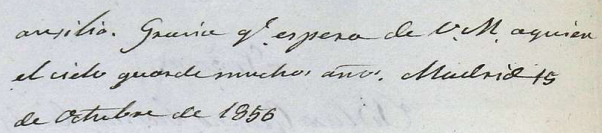 ausilio. Gracia q.e espera de V. M. aquien
el cielo guarde muchos años. Madrid 15
de Octubre de 1856